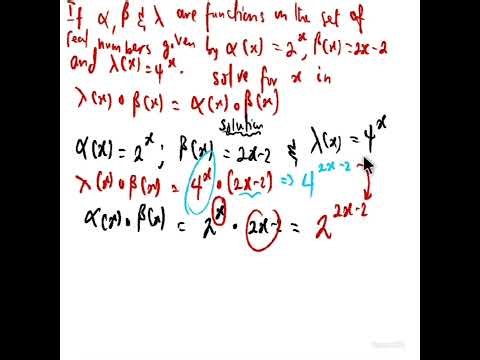 If α, β & λ are functions on the set of
real numbers given by α(x) = 2^x, β(x) = 2x-2
and λ(x) = 4^x. solve for x in
λ(x) ∘ β(x) = α(x) ∘ β(x)
solution
α(x) = 2^x ; β(x) = 2x-2 & λ(x) = 4^x
λ(x) ∘ β(x) = 4^x ∘ (2x-2) => 4^{2x-2}
α(x) ∘ β(x) = 2^x ∘ 2x-2 = 2^{2x-2}